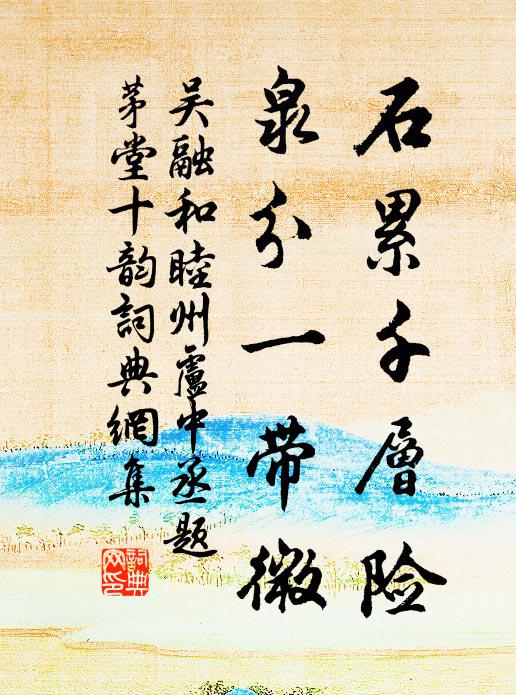 石累千層险
泉分一带微
吴融和睦州盧中丞题
茅堂十韵詞典網集
詞典